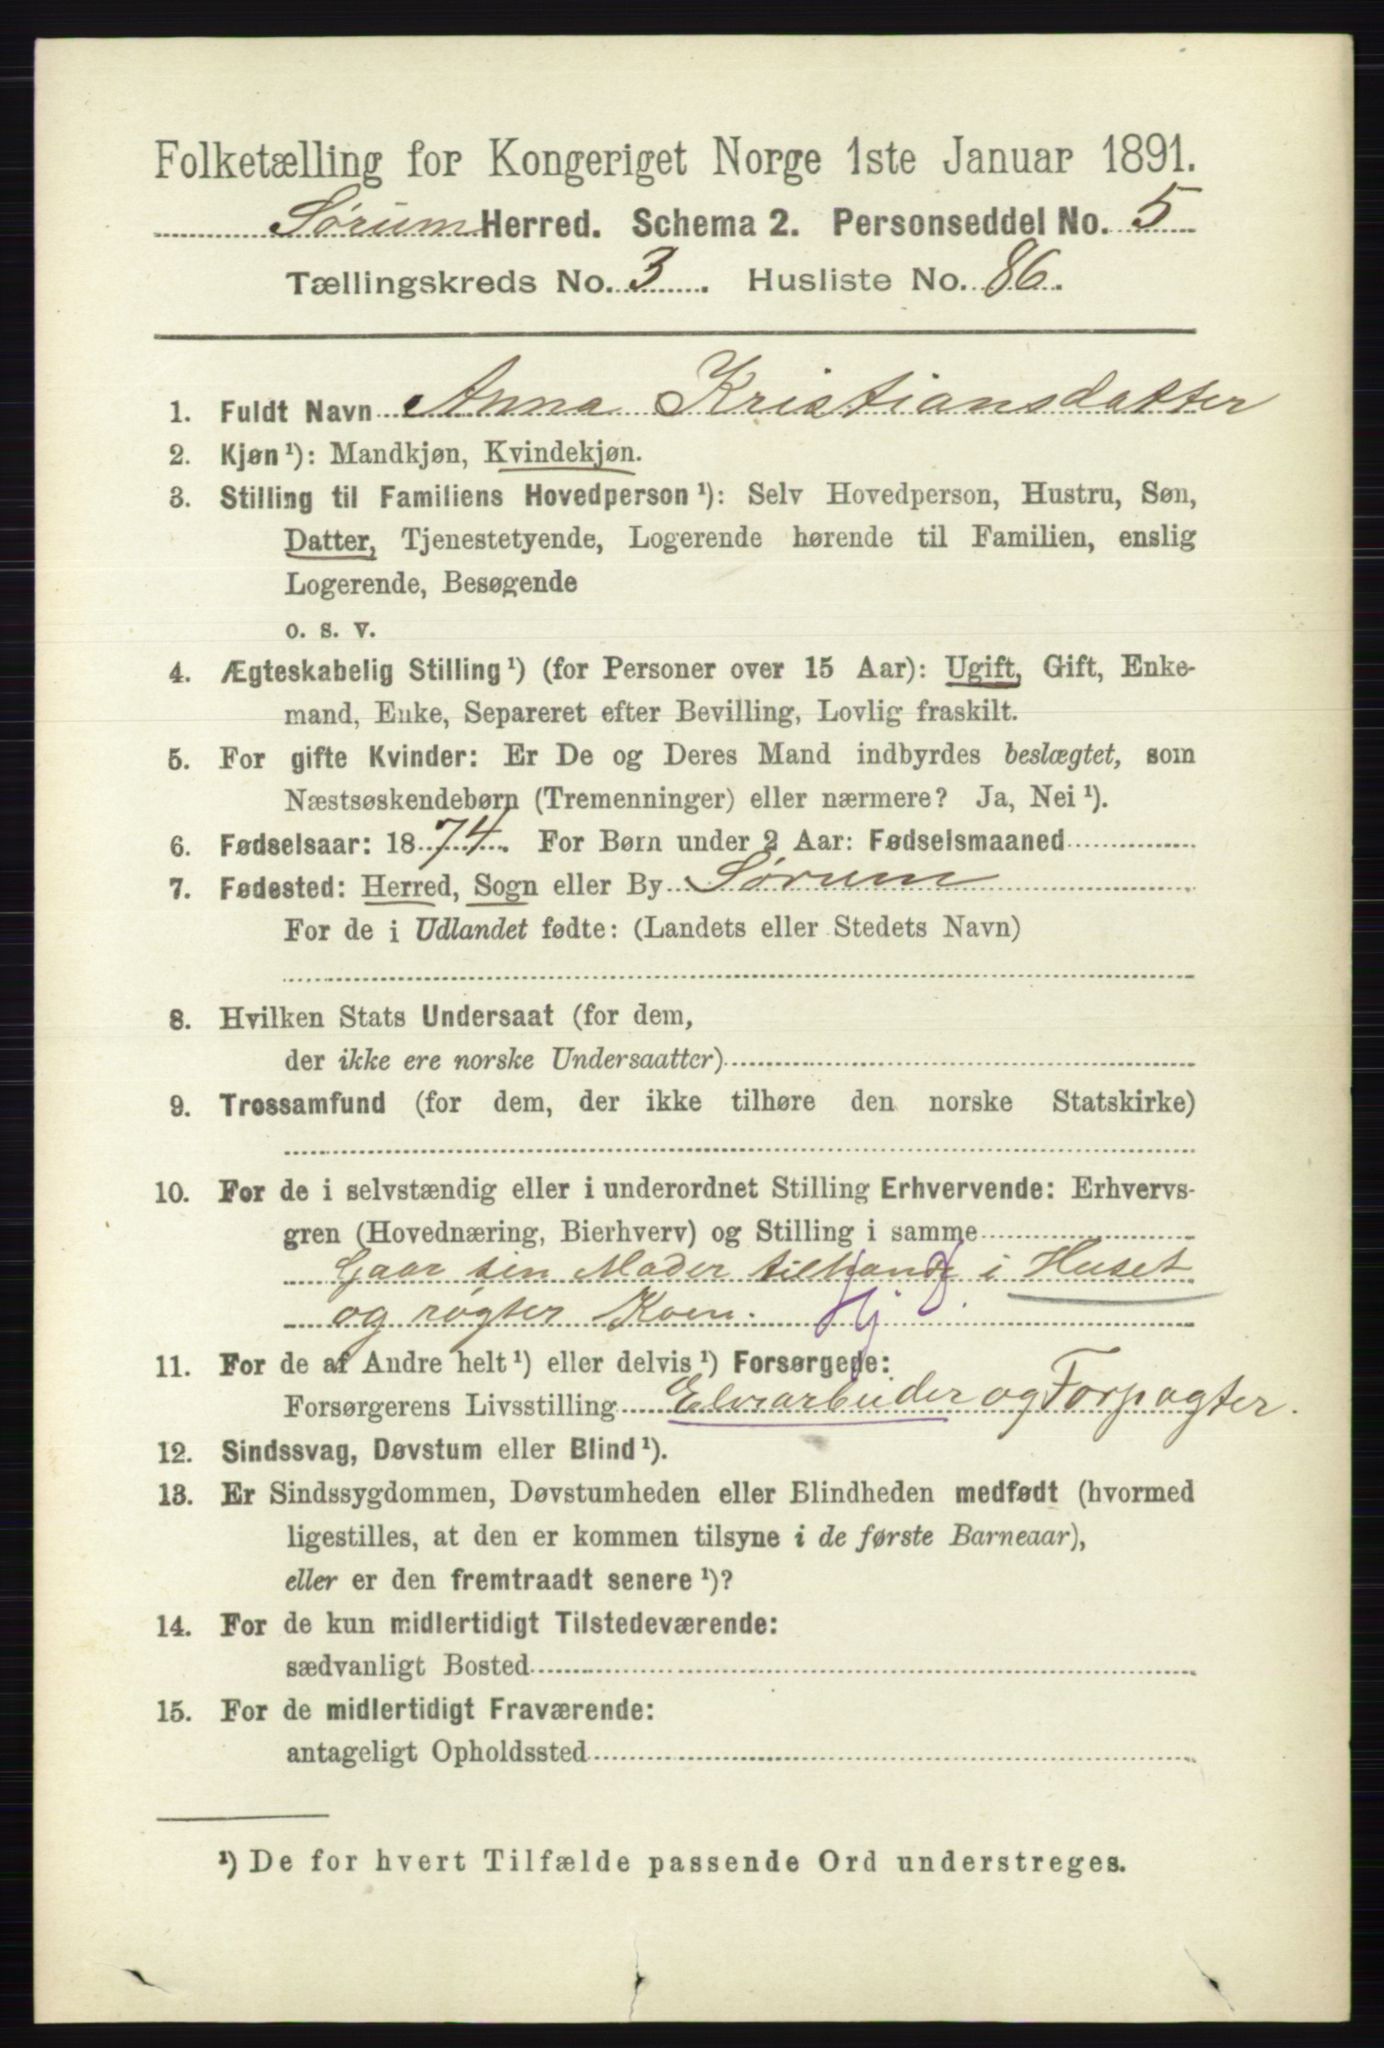 Folketælling for Kongeriget Norge 1ste Januar 1891.
Sørum Herred. Schema 2. Personseddel No. 5
Tællingskreds No. 3. Husliste No. 86.
1. Fuldt Navn Anna Kristiansdatter
2. Kjøn¹): Mandkjøn, Kvindekjøn.
3. Stilling til Familiens Hovedperson¹): Selv Hovedperson, Hustru, Søn,
Datter, Tjenestetyende, Logerende hørende til Familien, enslig
Logerende, Besøgende
o. s. v.
4. Ægteskabelig Stilling¹) (for Personer over 15 Aar): Ugift, Gift, Enke-
mand, Enke, Separeret efter Bevilling, Lovlig fraskilt.
5. For gifte Kvinder: Er De og Deres Mand indbyrdes beslægtet, som
Næstsøskendebørn (Tremenninger) eller nærmere? Ja, Nei¹).
6. Fødselsaar: 1874. For Børn under 2 Aar: Fødselsmaaned
7. Fødested: Herred, Sogn eller By Sørum
For de i Udlandet fødte: (Landets eller Stedets Navn)
8. Hvilken Stats Undersaat (for dem,
der ikke ere norske Undersaatter)
9. Trossamfund (for dem, der ikke tilhøre den norske Statskirke)
10. For de i selvstændig eller i underordnet Stilling Erhvervende: Erhvervs-
gren (Hovednæring, Bierhverv) og Stilling i samme
Gaar sin Moder tilhande i Huset
og røgter Koen.
11. For de af Andre helt¹) eller delvis¹) Forsørgede:
Forsørgerens Livsstilling Elvearbeider og Forpagter.
12. Sindssvag, Døvstum eller Blind¹).
13. Er Sindssygdommen, Døvstumheden eller Blindheden medfødt (hvormed
ligestilles, at den er kommen tilsyne i de første Barneaar),
eller er den fremtraadt senere¹)?
14. For de kun midlertidigt Tilstedeværende:
sædvanligt Bosted
15. For de midlertidigt Fraværende:
antageligt Opholdssted
¹) De for hvert Tilfælde passende Ord understreges.